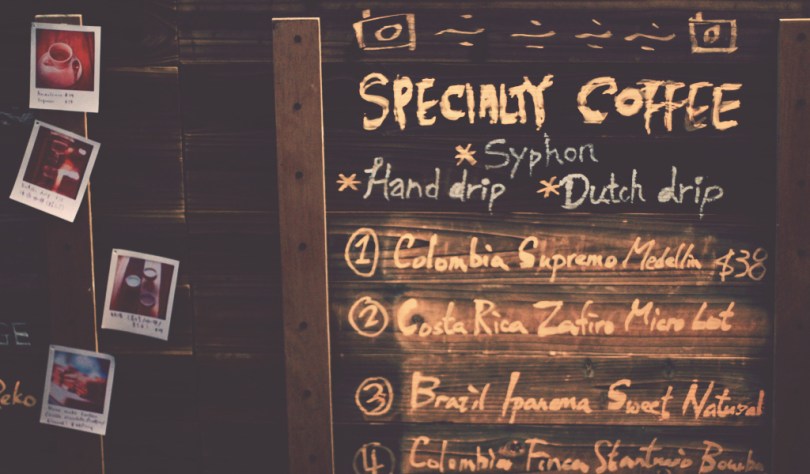 SPECIALTY COFFEE
* Syphon
* Hand drip * Dutch drip
① Colombia Supremo Medellin $38
② Costa Rica Zafiro Micro Lot
③ Brazil Ipanema Sweet Natural
④ Colombia Finca
GE
Reko